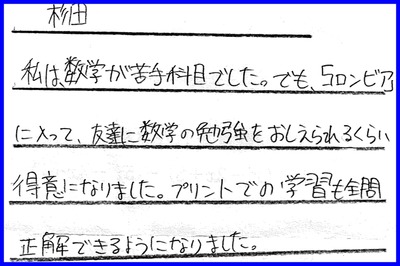 杉田
私は、数学が苦手科目でした。でも、コロンビア
に入って、友達に数学の勉強をおしえられるくらい
得意になりました。プリントでの学習も全問
正解できるようになりました。